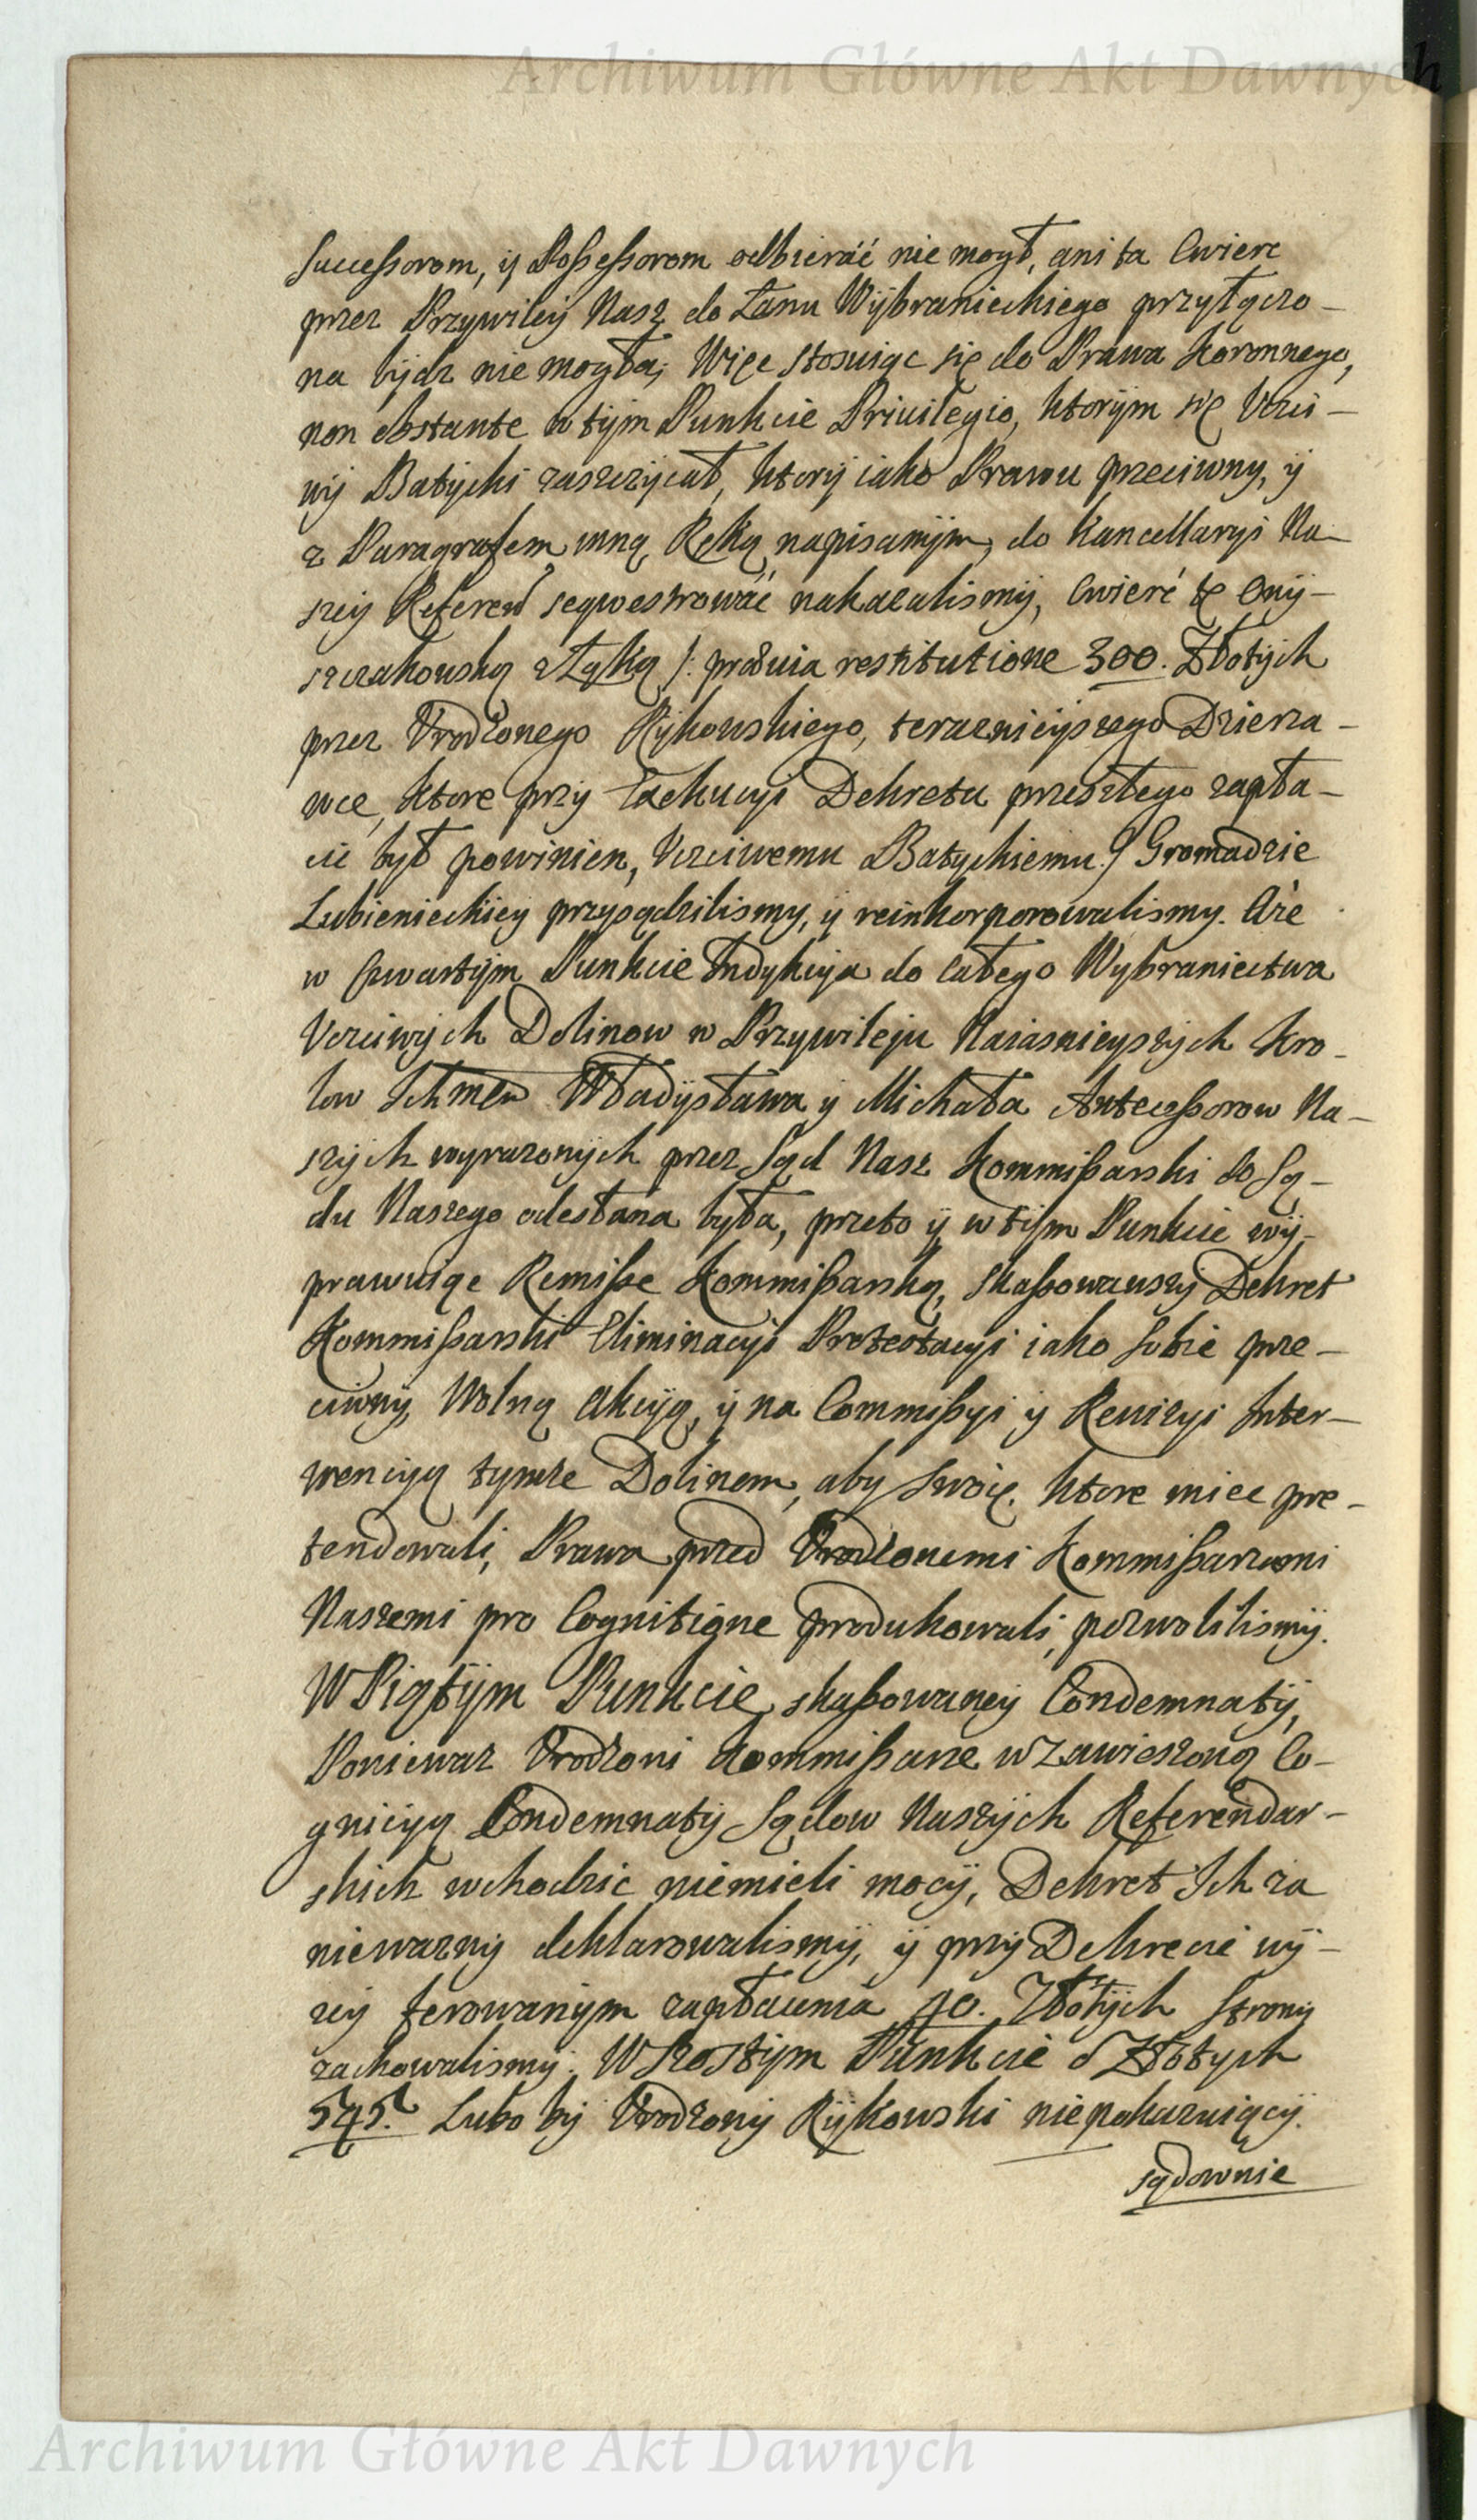 Archiwum Główne Akt Dawnych
Successorom, ÿ Possessorom odbieráć nie mogł, ani ta Cwierc
przez Przywileÿ Nasz do Łanu Wÿbranieckiego przyłączo-
na bÿdz nie mogła; Więc stosuiąc się do Prawa Koronnego,
non obstante w tÿm Punkcie Priuilegio, ktorÿm się Vczci-
wÿ Batÿcki zaszczÿcał, ktorÿ iako Prawu przeciwny, ÿ
z Paragrafem inną Ręką napisanÿm, do Kancellaryi Na-
szeÿ Referen sequestrowáć nakazalismÿ, Cwierć tę Onÿ-
szczakowską z Łąką /: praeuia restitutione 300. Złotÿch
przez Vrodzonego Rÿkowskiego, teraznieÿszego Dzierza-
wcę, ktore przy Exekucyi Dekretu przeszłego zapła-
cic był powinien, Vczciwemu Batyckiemu :/ Gromadzie
Lubienieckieÿ przysądzilismy, ÿ reinkorporowalismy. A że
w Czwartÿm Punkcie Indykcya do całego Wybraniectwa
Vczciwÿch Dolinow w Przywileju Naiasnieyszÿch Kro-
low Ichmcn Władÿsława y Michała Antecessorow Na-
szÿch wyrazonÿch przez Sąd Nasz Kommissarski do Są-
du Naszego odesłana była, przeto ÿ w tÿm Punkcie wÿ-
prawuiąc Remisse Kommissarską, skassowawszÿ Dekret
Kommissarski Eliminacyi Protestacyi iako sobie prze-
ciwnÿ, Wolną Akcÿą, ÿ na Commissyi ÿ Rewizyi Inter-
wencyą tymze Dolinom, aby swoie, ktore miec pre-
tendowali, Prawa przed Vrodzonemi Kommissarzami
Naszemi pro Cognitione produkowali, pozwolilismÿ.
W Piątÿm Punkcie, skassowaneÿ Condemnatÿ,
Poniewaz Vrodzoni Kommissarze w zawieszoną Co-
gnicyą Condemnatÿ Sądow Naszÿch Referendar-
skich wchodzic niemieli mocÿ, Dekret Ich za
niewaznÿ deklarowalismÿ, ÿ przÿ Dekrecie wÿ-
zeÿ ferowanÿm zapłacenia 40. Złotÿch Stronÿ
zachowalismÿ. W Szostÿm Punkcie o Złotych
545. Lubo bÿ Vrodzonÿ Rÿkowski niepokazuiącÿ.
sądownie
Archiwum Główne Akt Dawnych